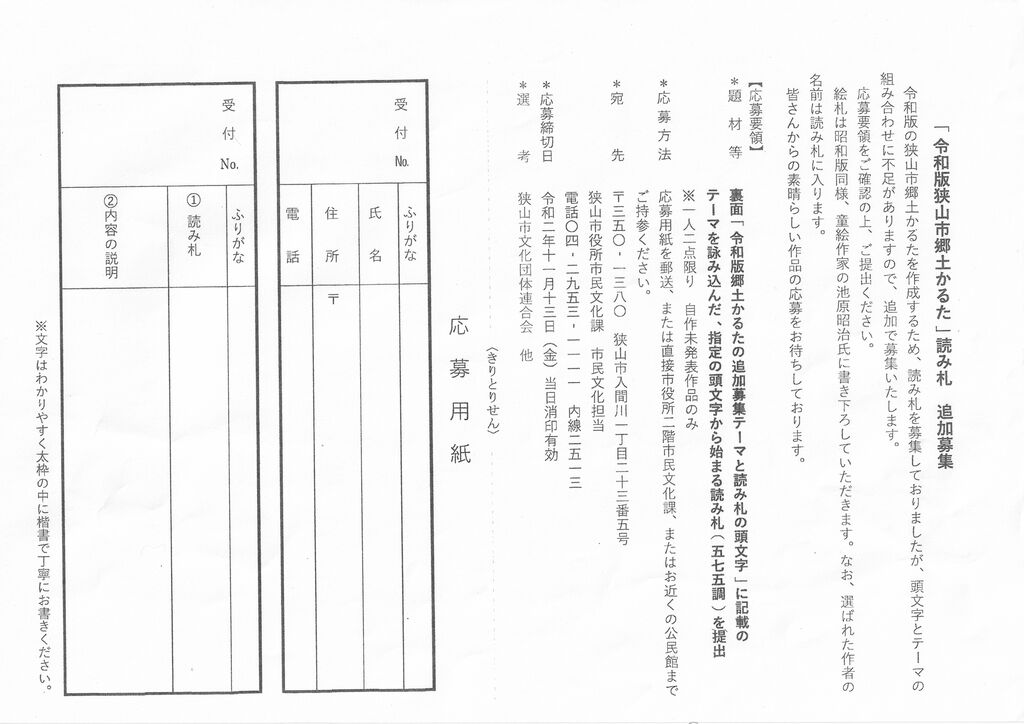 「令和版狭山市郷土かるた」読み札　追加募集
令和版の狭山市郷土かるたを作成するため、読み札を募集しておりましたが、頭文字とテーマの
組み合わせに不足がありますので、追加で募集いたします。
応募要領をご確認の上、ご提出ください。
絵札は昭和版同様、童絵作家の池原昭治氏に書き下ろしていただきます。なお、選ばれた作者の
名前は読み札に入ります。
皆さんからの素晴らしい作品の応募をお待ちしております。
【応募要領】
＊題材等　裏面「令和版郷土かるたの追加募集テーマと読み札の頭文字」に記載の
テーマを詠み込んだ、指定の頭文字から始まる読み札（五七五調）を提出
※一人二点限り　自作未発表作品のみ
＊応募方法　応募用紙を郵送、または直接市役所二階市民文化課、またはお近くの公民館まで
ご持参ください。
＊宛先　〒三五〇-一三八〇　狭山市入間川一丁目二十三番五号
狭山市役所市民文化課　市民文化担当
電話〇四-二九五三-一一一一　内線二五一三
＊応募締切日　令和二年十一月十三日（金）当日消印有効
＊選考　狭山市文化団体連合会　他
（きりとりせん）
応募用紙
受付 No.
ふりがな
氏名
住所　〒
電話
受付 No.
ふりがな
①読み札
②内容の説明
※文字はわかりやすく太枠の中に楷書で丁寧にお書きください。